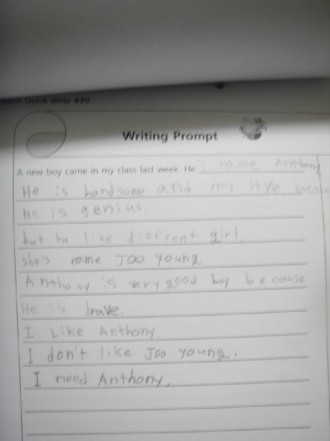 Quick Write #20
Writing Prompt
A new boy came in my class last week. He's name Anthony
He is handsome and my style because
He is genius.
but he like diffrent girl.
she's name Joo young
Anthony is very good boy because
He is brave.
I Like Anthony
I don't like Joo young.
I need Anthony.